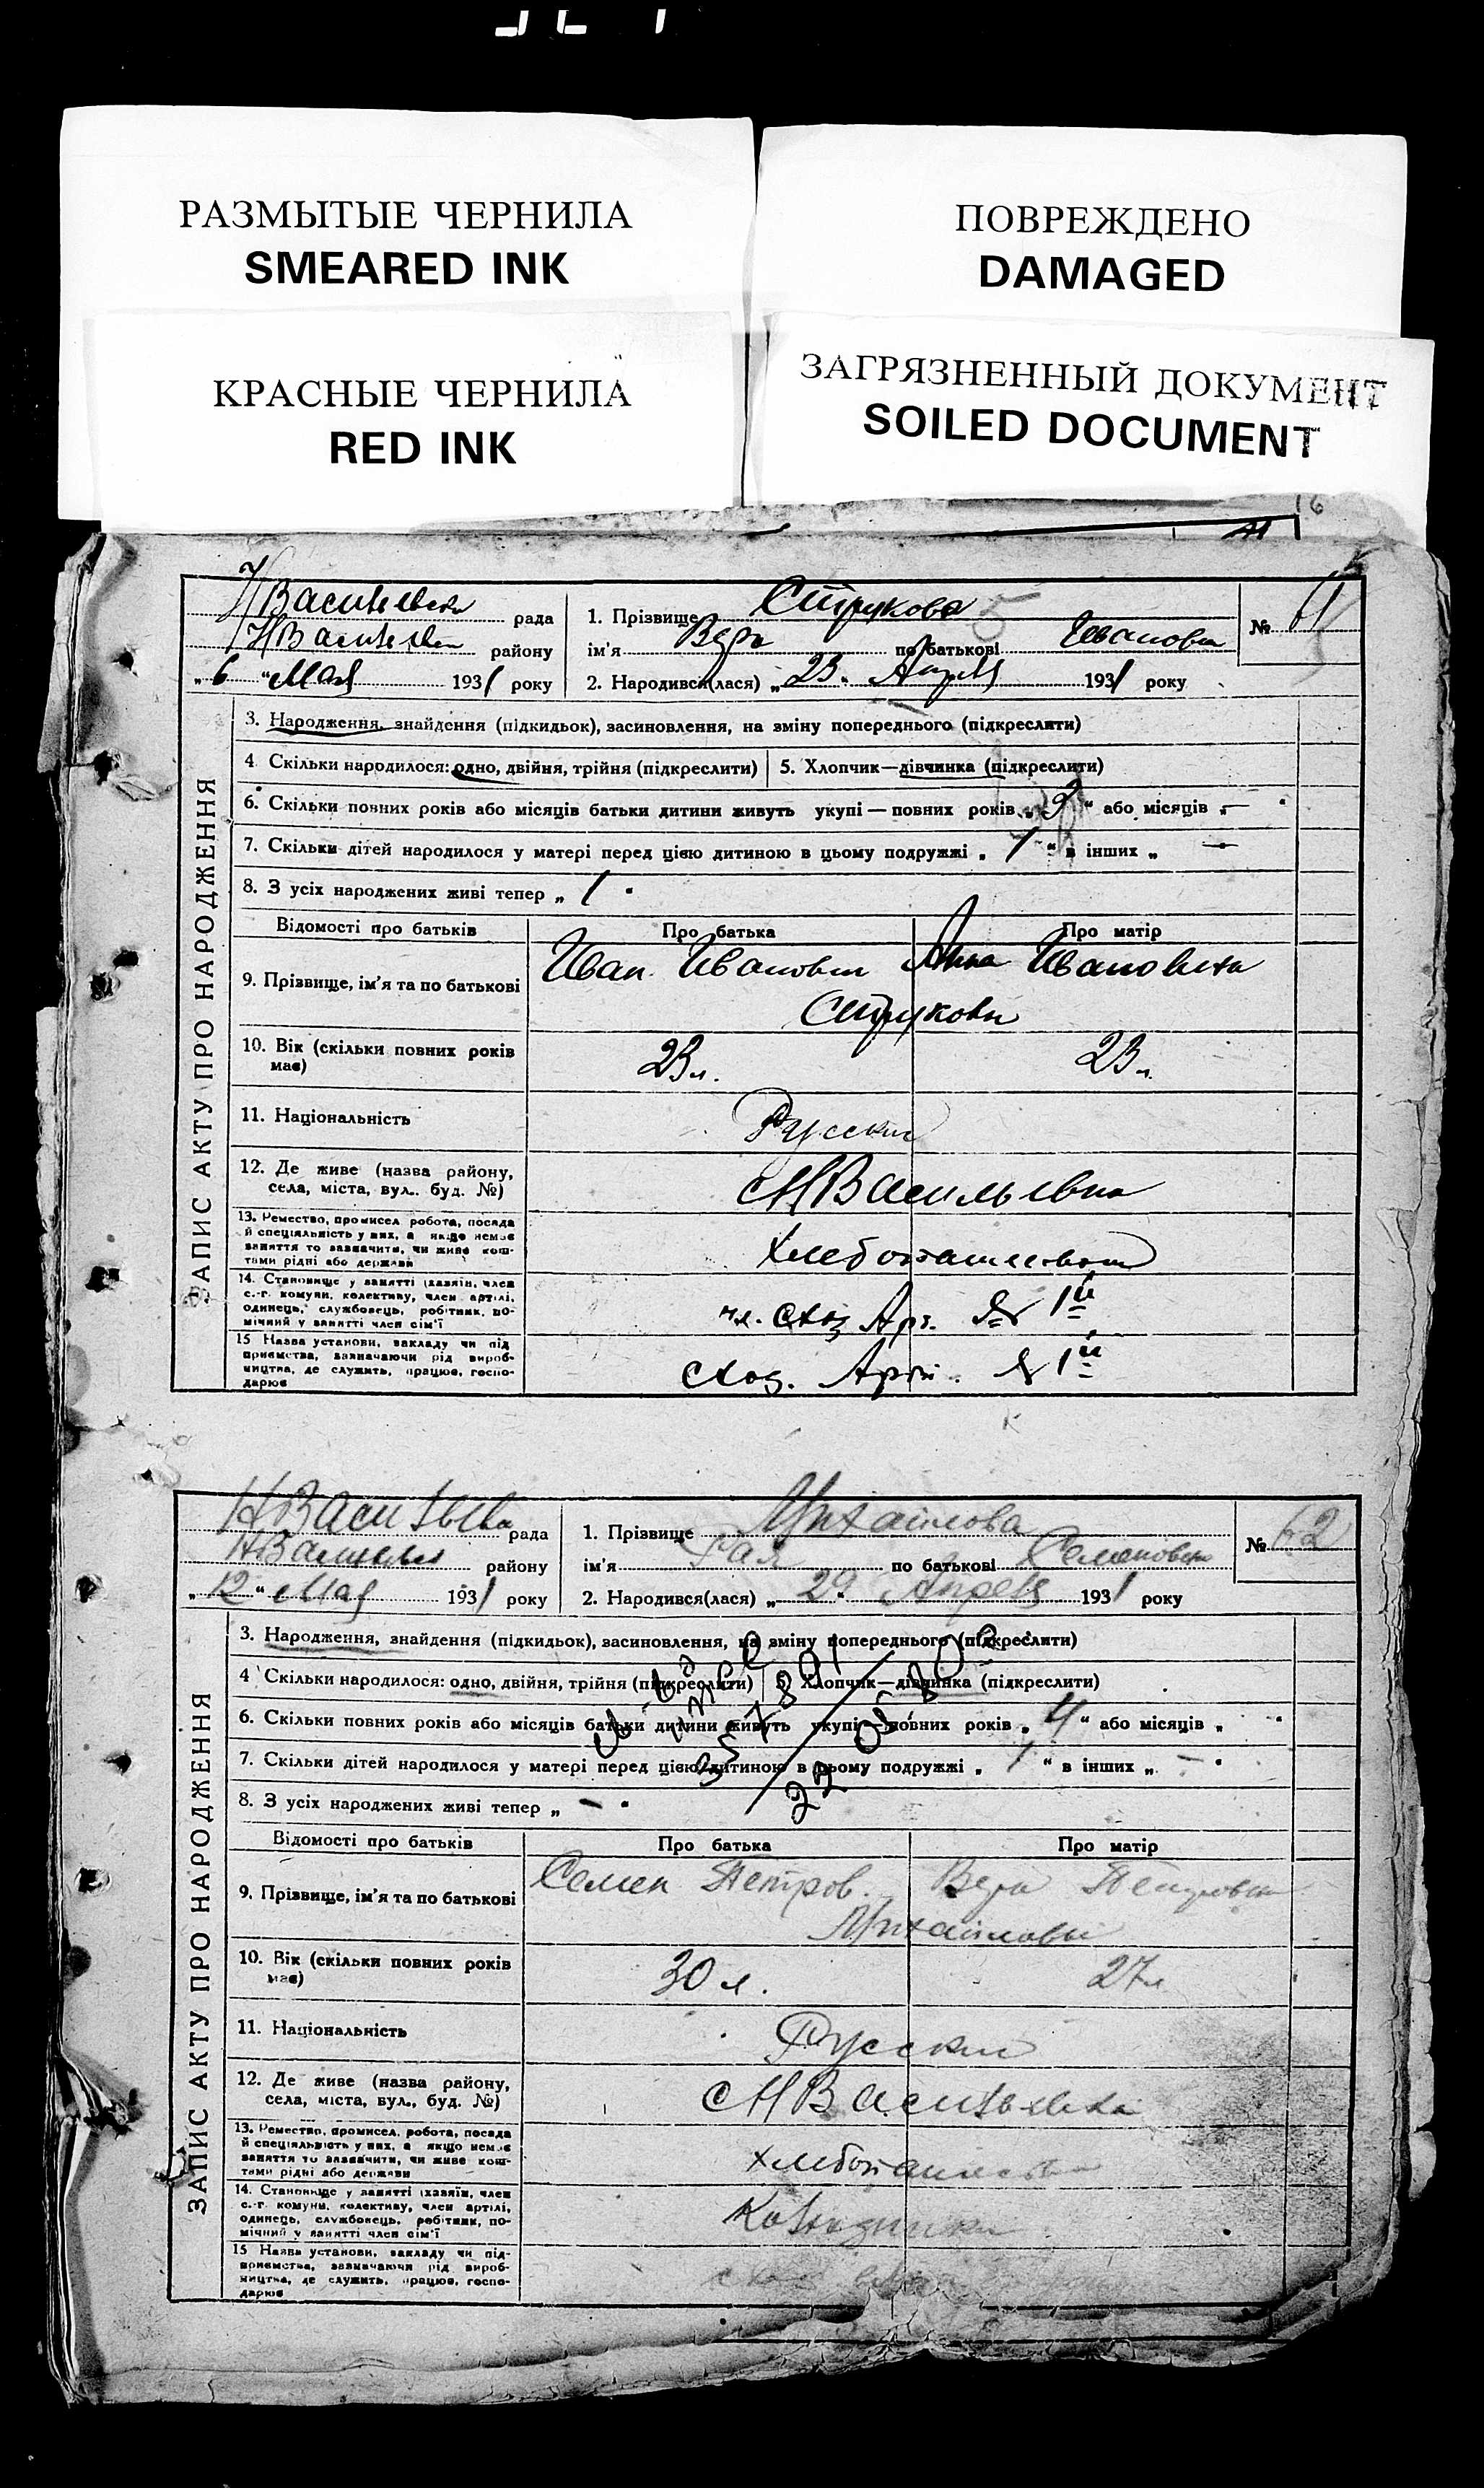 РАЗМЫТЫЕ ЧЕРНИЛА
SMEARED INK
ПОВРЕЖДЕНО
DAMAGED
КРАСНЫЕ ЧЕРНИЛА
RED INK
ЗАГРЯЗНЕННЫЙ ДОКУМЕНТ
SOILED DOCUMENT
16
ЗАПИС АКТУ ПРО НАРОДЖЕННЯ
рада
району
„6“ Мая 1931 року
1. Прізвище Струкова
ім'я Вера по батькові Ивановна
2. Народився(лася) „23“ Апреля 1931 року
№ 61
3. Народження, знайдення (підкидьок), засиновлення, на зміну попереднього (підкреслити)
4 Скільки народилося: одно, двійня, трійня (підкреслити)
5. Хлопчик—дівчинка (підкреслити)
6. Скільки повних років або місяців батьки дитини живуть укупі — повних років „3“ або місяців „—“
7. Скільки дітей народилося у матері перед цією дитиною в цьому подружжі „1“ в інших „—“
8. З усіх народжених живі тепер „1“
Відомості про батьків
Про батька
Про матір
9. Прізвище, ім'я та по батькові
Иван Иванович
Анна Ивановна
Струковы
10. Вік (скільки повних років має)
23 л.
23 л.
11. Національність
Русские
12. Де живе (назва району, села, міста, вул., буд. №)
с НВасильевка
13. Ремество, промисел, робота, посада
й спеціяльність у них, а якщо немає
заняття то зазначити, чи живе кош-
тами рідні або держави
Хлебопашество
14. Становище у занятті (хазяїн, член
с.-г. комуни, колективу, член артілі,
одинець, службовець, робітник, по-
мічний у занятті член сім'ї
чл. Арт. 1й
15 Назва установи, закладу чи під
приємства, зазначаючи рід вироб-
ництва, де служить, працює, госпо-
дарює
Арт. 1й
ЗАПИС АКТУ ПРО НАРОДЖЕННЯ
рада
району
„12“ Мая 1931 року
1. Прізвище Михайлова
ім'я Рая по батькові Семеновна
2. Народився(лася) „29“ Апреля 1931 року
№ 62
3. Народження, знайдення (підкидьок), засиновлення, на зміну попереднього (підкреслити)
4 Скільки народилося: одно, двійня, трійня (підкреслити)
5. Хлопчик—дівчинка (підкреслити)
6. Скільки повних років або місяців батьки дитини живуть укупі — повних років „4“ або місяців „ “
7. Скільки дітей народилося у матері перед цією дитиною в цьому подружжі „1“ в інших „—“
8. З усіх народжених живі тепер „—“
Відомості про батьків
Про батька
Про матір
9. Прізвище, ім'я та по батькові
Семен Петров.
Вера Петровна
Михайловы
10. Вік (скільки повних років має)
30 л.
27 л
11. Національність
Русские
12. Де живе (назва району, села, міста, вул., буд. №)
с НВасильевка
13. Ремество, промисел, робота, посада
й спеціяльність у них, а якщо немає
заняття то зазначити, чи живе кош-
тами рідні або держави
Хлебопашество
14. Становище у занятті (хазяїн, член
с.-г. комуни, колективу, член артілі,
одинець, службовець, робітник, по-
мічний у занятті член сім'ї
15 Назва установи, закладу чи під-
приємства, зазначаючи рід вироб-
ництва, де служить, працює, госпо-
дарює